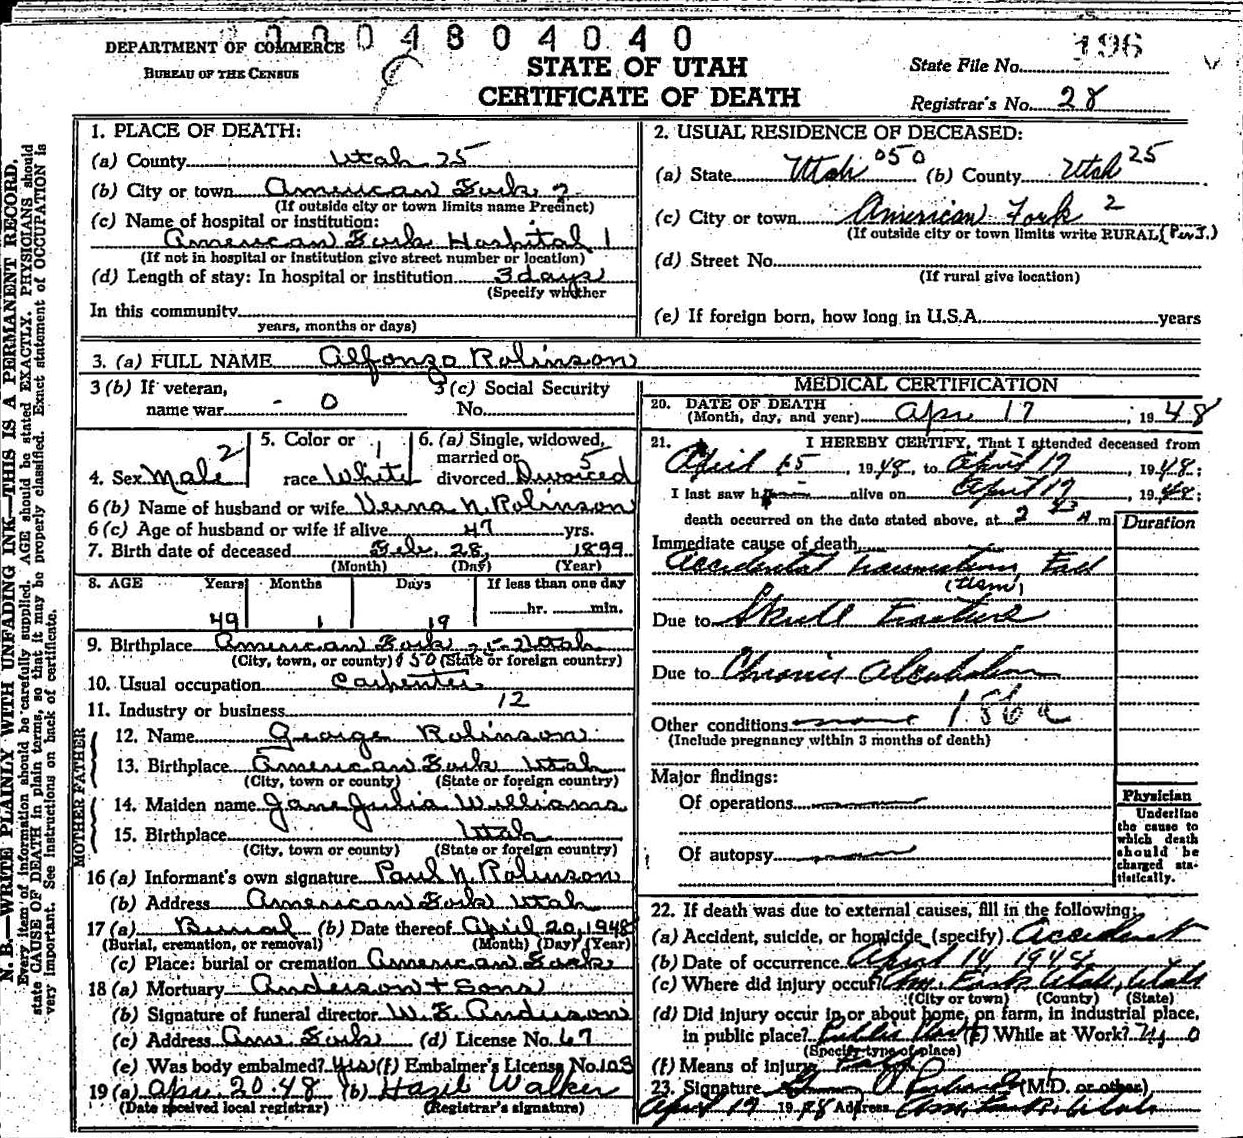 0004804040
DEPARTMENT OF COMMERCE
BUREAU OF THE CENSUS
STATE OF UTAH
CERTIFICATE OF DEATH
State File No. 196
Registrar's No. 28
N. B.—WRITE PLAINLY WITH UNFADING INK—THIS IS A PERMANENT RECORD.
Every item of information should be carefully supplied. AGE should be stated EXACTLY. PHYSICIANS should
state CAUSE OF DEATH in plain terms, so that it may be properly classified. Exact statement of OCCUPATION is
very important. See instructions on back of certificate.
1. PLACE OF DEATH:
(a) County Utah 25
(b) City or town American Fork 2
(If outside city or town limits name Precinct)
(c) Name of hospital or institution:
American Fork Hospital 1
(If not in hospital or institution give street number or location)
(d) Length of stay: In hospital or institution 3 days
(Specify whether
In this community
years, months or days)
2. USUAL RESIDENCE OF DECEASED:
(a) State Utah 050 (b) County Utah 25
(c) City or town American Fork 2
(If outside city or town limits write RURAL
(d) Street No.
(If rural give location)
(e) If foreign born, how long in U.S.A. years
3. (a) FULL NAME Alfonzo Robinson
3 (b) If veteran, name war - 0
3 (c) Social Security No.
4. Sex Male 2
5. Color or race White 1
6. (a) Single, widowed, married or divorced Divorced 5
6 (b) Name of husband or wife Verna N. Robinson
6 (c) Age of husband or wife if alive 47 yrs.
7. Birth date of deceased Feb. 28, 1899
(Month) (Day) (Year)
8. AGE Years Months Days If less than one day
49 1 19 hr. min.
9. Birthplace American Fork 25 Utah
(City, town, or county) 050 (State or foreign country)
10. Usual occupation Carpenter
11. Industry or business 12
FATHER
12. Name George Robinson
13. Birthplace American Fork Utah
(City, town or county) (State or foreign country)
MOTHER
14. Maiden name Jane Julia Williams
15. Birthplace Utah
(City, town or county) (State or foreign country)
16 (a) Informant's own signature Paul N. Robinson
(b) Address American Fork Utah
17 (a) Burial (b) Date thereof April 20, 1948
(Burial, cremation, or removal) (Month) (Day) (Year)
(c) Place: burial or cremation American Fork
18 (a) Mortuary Anderson + Sons
(b) Signature of funeral director W. E. Anderson
(c) Address Am. Fork (d) License No. 67
(e) Was body embalmed? Yes (f) Embalmer's License No. 103
19 (a) Apr. 20.48 (b) Hazel Walker
(Date received local registrar) (Registrar's signature)
MEDICAL CERTIFICATION
20. DATE OF DEATH
(Month, day, and year) Apr. 17, 1948
21. I HEREBY CERTIFY, That I attended deceased from
April 15, 1948, to April 17, 1948;
I last saw h alive on April 17, 1948;
death occurred on the date stated above, at 2 43 A m.
Duration
Immediate cause of death
Accidental Fall
Due to Skull Fracture
Due to Chronic Alcoholism
Other conditions none 186a
(Include pregnancy within 3 months of death)
Major findings:
Of operations none
Of autopsy none
Physician
Underline
the cause to
which death
should be
charged sta-
tistically.
22. If death was due to external causes, fill in the following:
(a) Accident, suicide, or homicide (specify) Accident
(b) Date of occurrence April 14, 1948
(c) Where did injury occur? Am. Fork, Utah, Utah
(City or town) (County) (State)
(d) Did injury occur in or about home, on farm, in industrial place,
in public place? Public (e) While at Work? No
(Specify type of place)
(f) Means of injury Fall
23. Signature (M.D. or other)
April 19 1948 Address Am. Fork, Utah